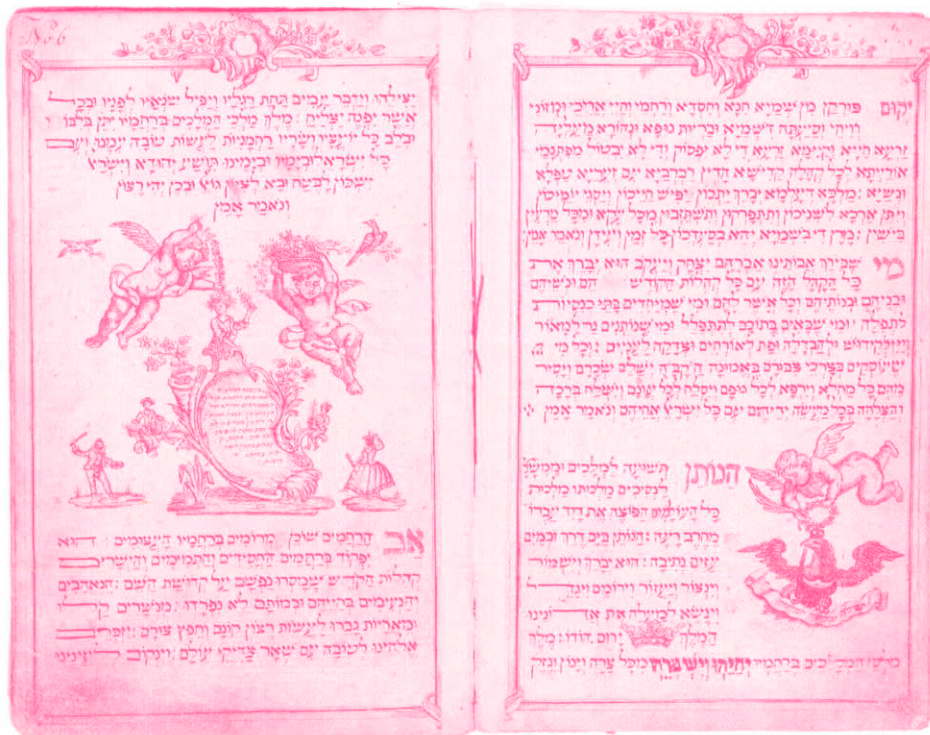 יקום פורקן מן שמייא חנא וחסדא ורחמי וחיי אריכי ומזוני
רויחי וסייעתא דשמייא ובריות גופא ונהורא מעליא
זרעא חייא וקיימא זרעא די לא יפסוק ודי לא יבטול מפתגמי
אורייתא לכל קהלא קדישא הדין רברבייא עם זעריא טפלא
ונשיא : מלכא דעלמא יברך יתכון ויפיש חייכון ויסגי יומיכון
ויתן ארכא לשניכון ותתפרקון ותשתזבון מכל עקא ומכל מרעין
בישין : מרן די בשמייא יהא בסעדכון כל זמן ועידן ונאמר אמן
מי שבירך אבותינו אברהם יצחק ויעקב הוא יברך את
כל הקהל הזה עם כל קהלות הקודש הם ונשיהם
ובניהם ובנותיהם וכל אשר להם ומי שמיחדים בתי כנסיות
לתפלה : ומי שבאים בתוכם להתפלל ומי שנותנים נר למאור
ויין לקידוש ולהבדלה ופת לאורחים וצדקה לעניים : וכל מי
שעוסקים בצרכי צבור באמונה הקב״ה ישלם שכרם ויסיר
מהם כל מחלה וירפא לכל גופם ויסלח לכל עונם וישלח ברכה
והצלחה בכל מעשה ידיהם עם כל ישראל אחיהם ונאמר אמן :
הנותן תשועה למלכים וממשלה
לנסיכים מלכותו מלכות
כל העולמים הפוצה את דוד עבדו
מחרב רעה : הנותן בים דרך ובמים
עזים נתיבה : הוא יברך וישמור
וינצור ויעזור וירומם ויגדל
וינשא למעלה את אדונינו
המלך ירום הודו : מלך
מלכי המלכים ברחמיו יחיהו וישמרהו מכל צרה ויגון ונזק
No 6
יצילהו וידבר עמים תחת רגליו ויפיל שונאיו לפניו ובכל
אשר יפנה יצליח : מלך מלכי המלכים ברחמיו יתן בלבו
ובלב כל יועציו ושריו רחמניות לעשות טובה עמנו ועם
כל ישראל בימיו ובימינו תושע יהודא וישראל
ישכון לבטח ובא לציון גואל ובכן יהי רצון
ונאמר אמן
אב הרחמים שוכן מרומים ברחמיו העצומים : הוא
יפקוד ברחמים החסידים והתמימים והישרים
קהלות הקדש שמסרו נפשם על קדושת השם : הנאהבים
והנעימים בחייהם ובמותם לא נפרדו : מנשרים קלו
ומאריות גברו לעשות רצון קונם וחפץ צורם : יזכרם
אלהינו לטובה עם שאר צדיקי עולם : וינקום לעינינו